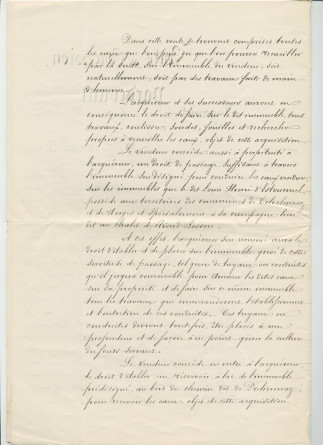 Dans cette vente se trouvent comprises toutes
les eaux que l'on peut ou que l'on pourra recueillir
par la suite, sur l'immeuble du vendeur, soit
naturellement, soit par des travaux faits de main
d'homme.
L'acquéreur et ses successeurs auront en
conséquence le droit de faire sur le dit immeuble, tous
travaux, coulisses, sondes, fouilles et recherches
propres à recueillir les eaux, objet de cette acquisition.
Le vendeur concède aussi à perpétuité à
l'acquéreur, un droit de passage suffisant à travers
l'immeuble sus désigné, pour conduire les eaux vendues
sur les immeubles que le dit Louis Henri
possède aux territoires des communes de
et de Morges et spécialement à sa campagne lieu
dit au Chalet de
A cet effet, l'acquéreur sus nommé aura le
droit d'établir et de placer sur l'immeuble grevé de cette
servitude de passage, tel genre de tuyaux ou conduites
qu'il jugera convenable pour amener les dites eaux
sur sa propriété, et de faire sur ce même immeuble
tous les travaux que nécessiteront l'établissement
et l'entretien de ces conduites. Ces tuyaux ou
conduites devront toutefois être placés à une
profondeur et de façon à ne point gêner la culture
du fonds servant.
Le vendeur concède en outre à l'acquéreur
le droit d'établir un réservoir, à de l'immeuble
prédésigné, au bord du chemin dit de
pour recevoir les eaux objet de cette acquisition.